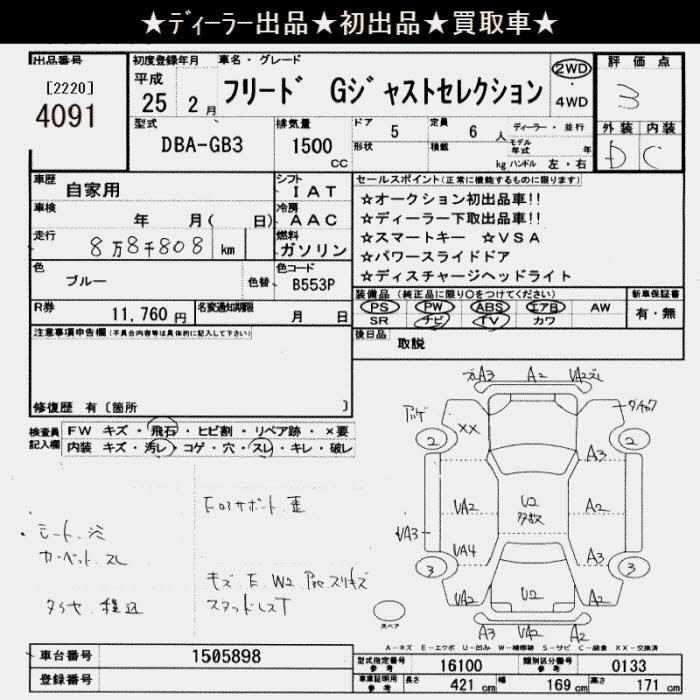 ★ディーラー出品★初出品★買取車★
出品番号
[2220]
4091
初度登録年月
平成
25 2月
車名・グレード
フリード Gジャストセレクション
2WD
・
4WD
評価点
3
外装 内装
D C
型式
DBA-GB3
排気量
1500
CC
ドア 5
形状
定員 6 人
積載 kg
ディーラー・並行
モデル年式 年
ハンドル 左・右
車歴
自家用
車検
年 月( 日)
走行
8万8千808 km
シフト
IAT
冷房
AAC
燃料
ガソリン
セールスポイント(正常に機能するものに限ります)
☆オークション初出品車!!
☆ディーラー下取出品車!!
☆スマートキー ☆VSA
☆パワースライドドア
☆ディスチャージヘッドライト
色
ブルー
色替
色コード
B553P
R券
11,760 円
名変通知期限
月 日
装備品 (純正品に限り○をつけてください)
PS PW ABS エアB AW
SR ナビ TV カワ
新車保証書
有・無
後日品
取説
注意事項申告欄(不具合内容等は具体的に記入して下さい)
修復歴 有〔箇所 〕
検査員
記入欄
FW キズ・飛石・ヒビ割・リペア跡・×要
内装 キズ・汚レ・コゲ・穴・スレ・キレ・破レ
シート
カーペット スレ
タイヤ 積込
コアサポート 歪
キズ E W2
スタッドレスT
A3 A2 VA2
XX
2 2
A3
VA2 U2 A2
多数
VA3
VA4 A3
3 3
VA2 U2 A2
A3 VA2 A2
スペア
A-キズ E-エクボ U-凹み W-補修跡 S-サビ C-腐食 XX-交換済
車台番号
1505898
登録番号
型式指定番号
参考
16100
類別区分番号
参考
0133
車庫証明用
参考
長さ 421 cm 幅 169 cm 高さ 171 cm